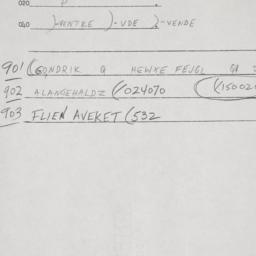 020
040 )-VENTRE )-UDE )-VENDE
901 (GONDRIK G HEWKE FEJGL
902 ALANGEHALDZ (024070 (15002
903 FLIEN AVEKET (532